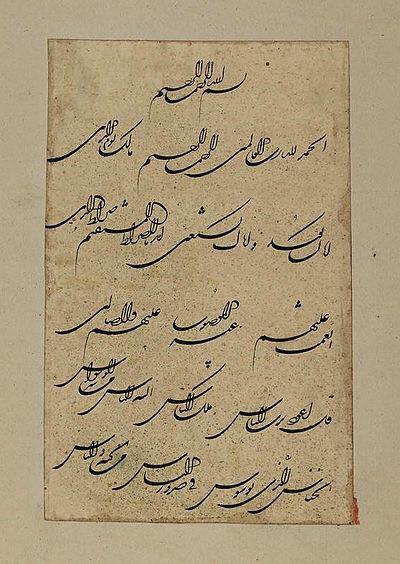 بسم الله الرحمن الرحیم
الحمد لله رب العالمین الرحمن الرحیم مالک یوم الدین
ایاک نعبد وایاک نستعین اهدنا الصراط المستقیم صراط الذین
انعمت علیهم غیر المغضوب علیهم ولا الضالین
قل اعوذ برب الناس ملک الناس اله الناس من شر الوسواس
الخناس الذی یوسوس فی صدور الناس من الجنة والناس